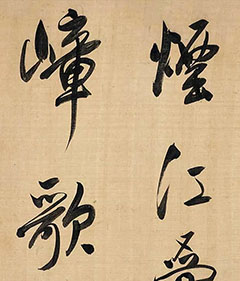 煙江疊
嶂歌